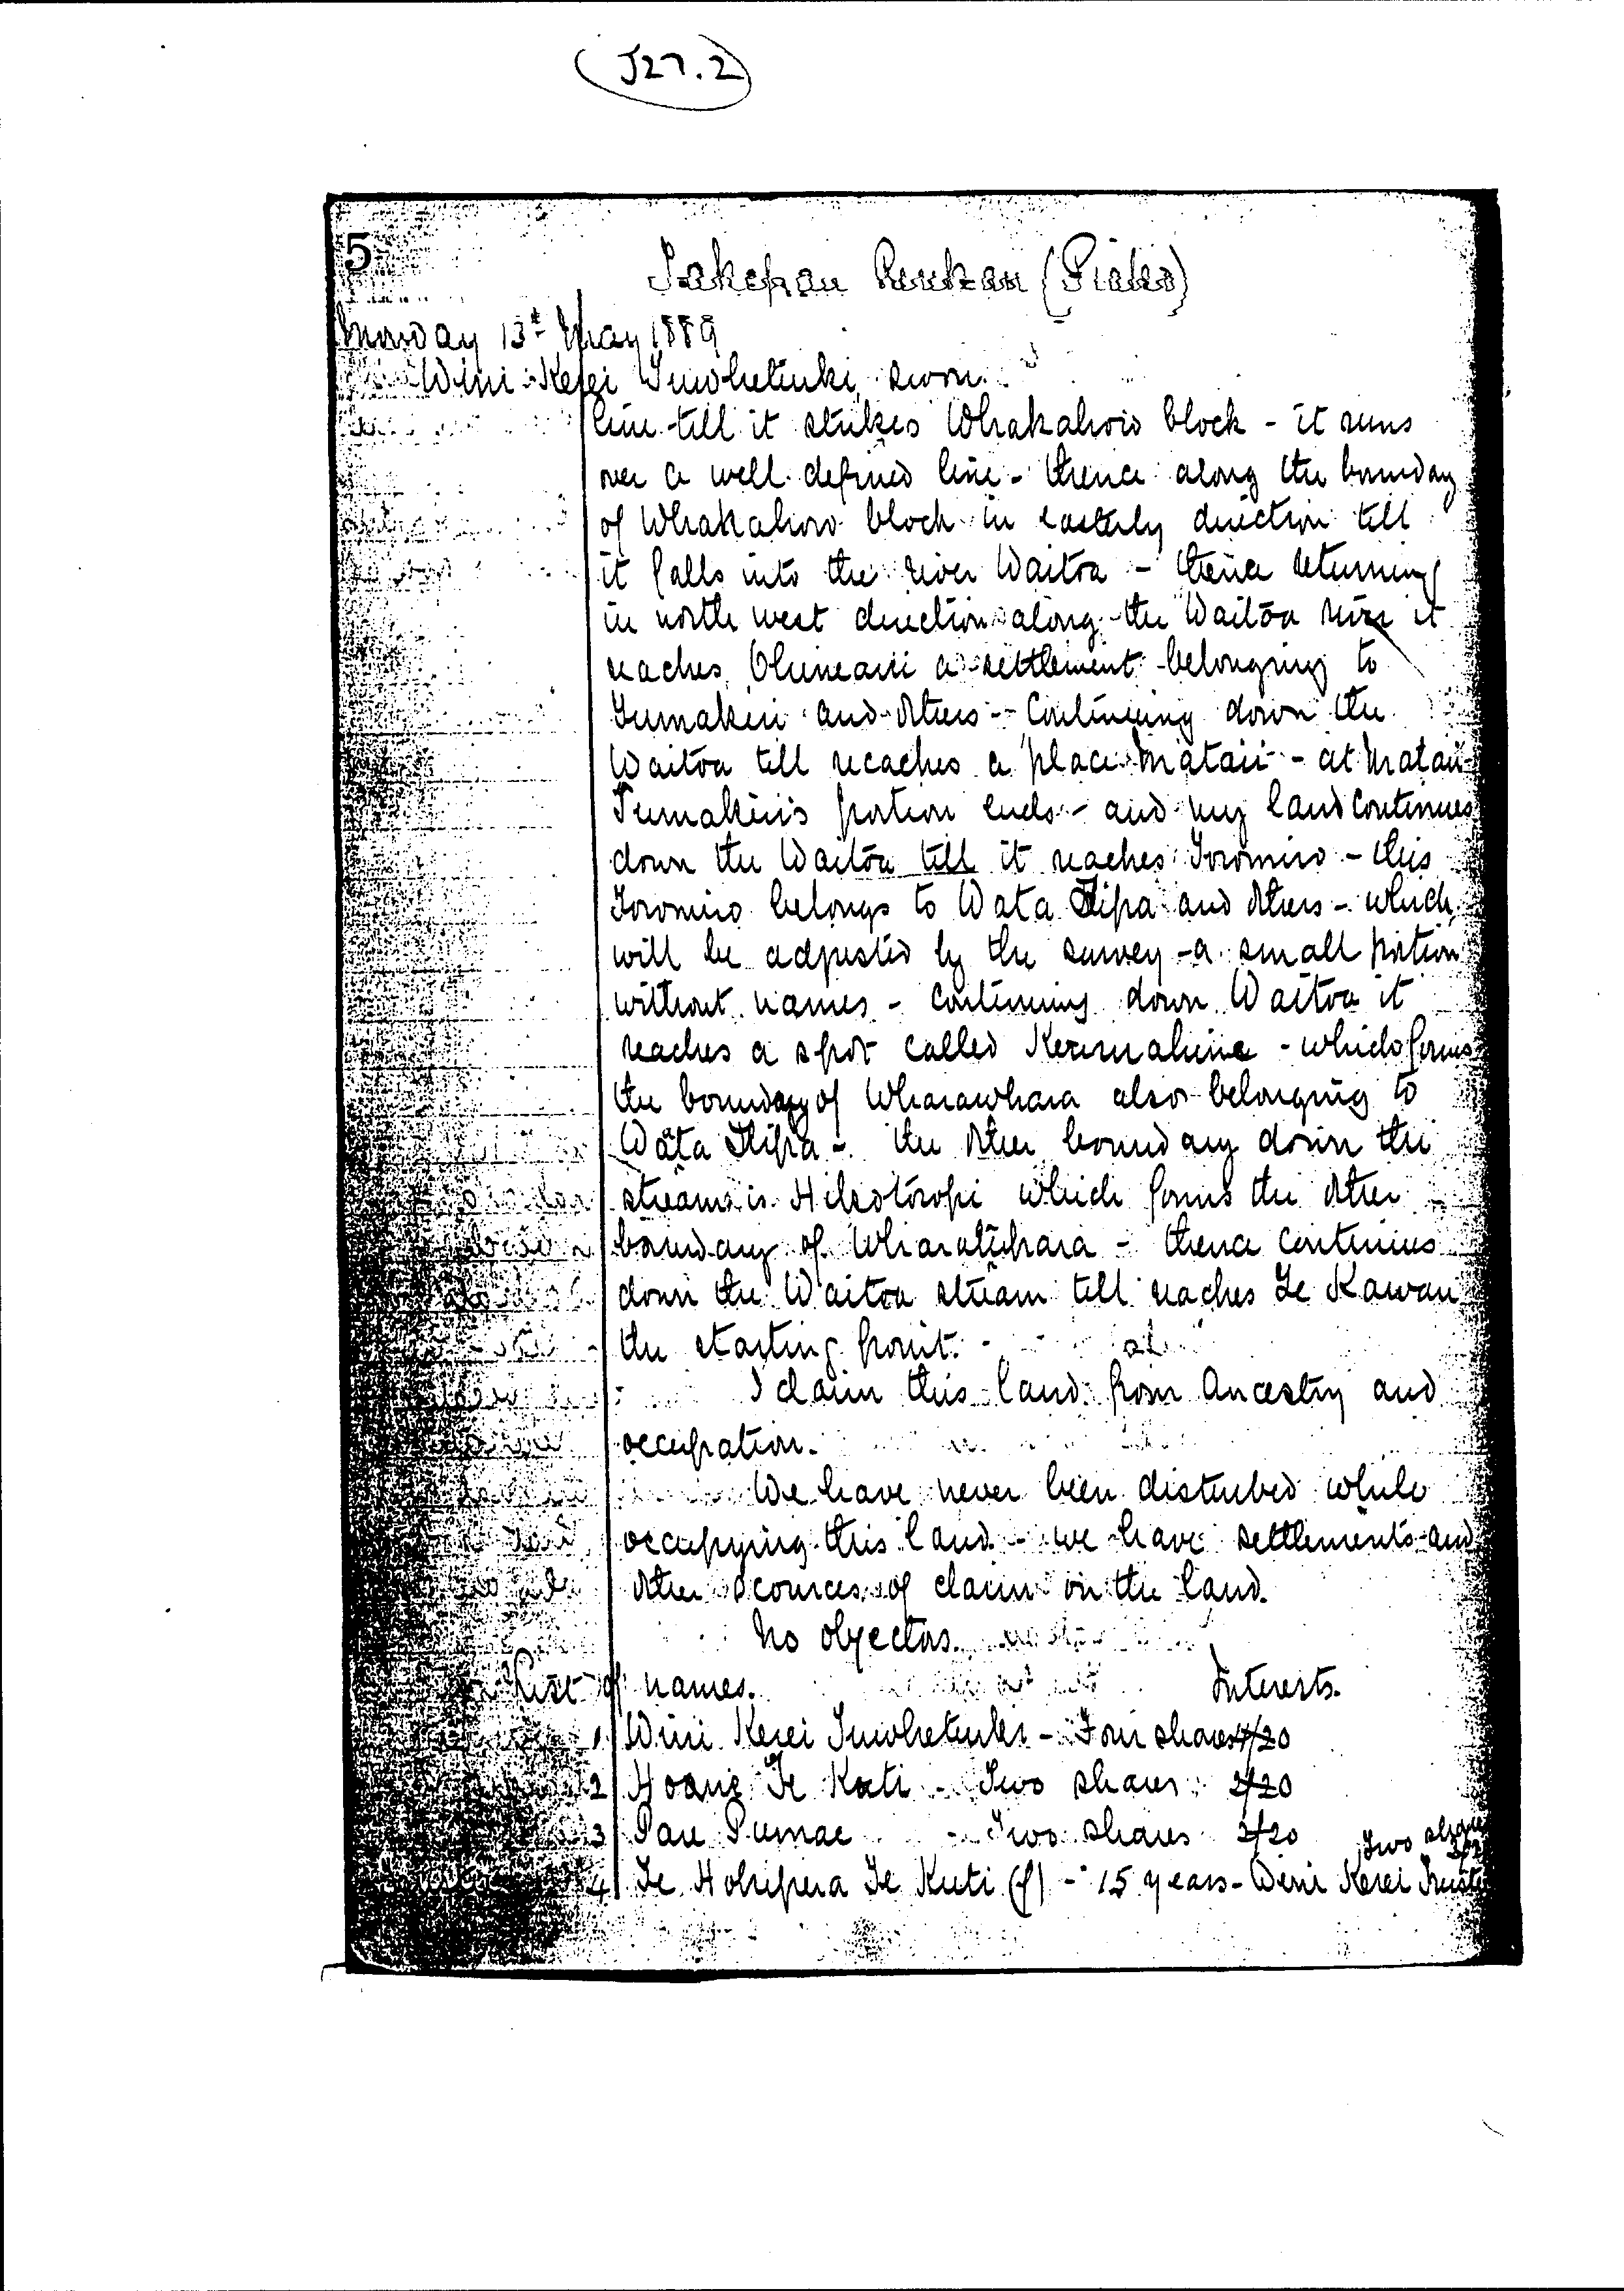 (J27.2)
5
(Piako)
Monday 13th May 1889
Wini Kerei Tuwhetuki sworn.
line till it strikes Whakahoro block - it runs
over a well defined line - thence along the boundary
of Whakahoro block in easterly direction till
it falls into the river Waitoa - thence returning
in north west direction along the Waitoa river it
reaches a settlement belonging to
Tumakiri and others - Continuing down the
Waitoa till reaches a place Mataii - at Mataii
Tumakiri's portion ends - and my land continues
down the Waitoa till it reaches Toromiro - this
Toromiro belongs to Wata Tipa and others - which
will be adjusted by the survey - a small portion
without names - continuing down Waitoa it
reaches a spot called - which forms
the boundary of Wharawhara also belonging to
Wata Tipa - the other boundary down the
stream is which forms the other
boundary of Wharawhara - thence continues
down the Waitoa stream till reaches Te Kawau
the starting point.
I claim this land from Ancestry and
occupation.
We have never been disturbed while
occupying this land - we have settlements and
other sources of claim on the land.
No objectors.
List of names. Interests.
1 Wini Kerei Tuwhetuki - Four shares 4/20
2 Hoani Te Kuti - Two shares 2/20
3 Pau Pumae - Two shares 2/20 Two shares
4 Te Hohipera Te Kuti (f) - 15 years - Wini Kerei Trustee